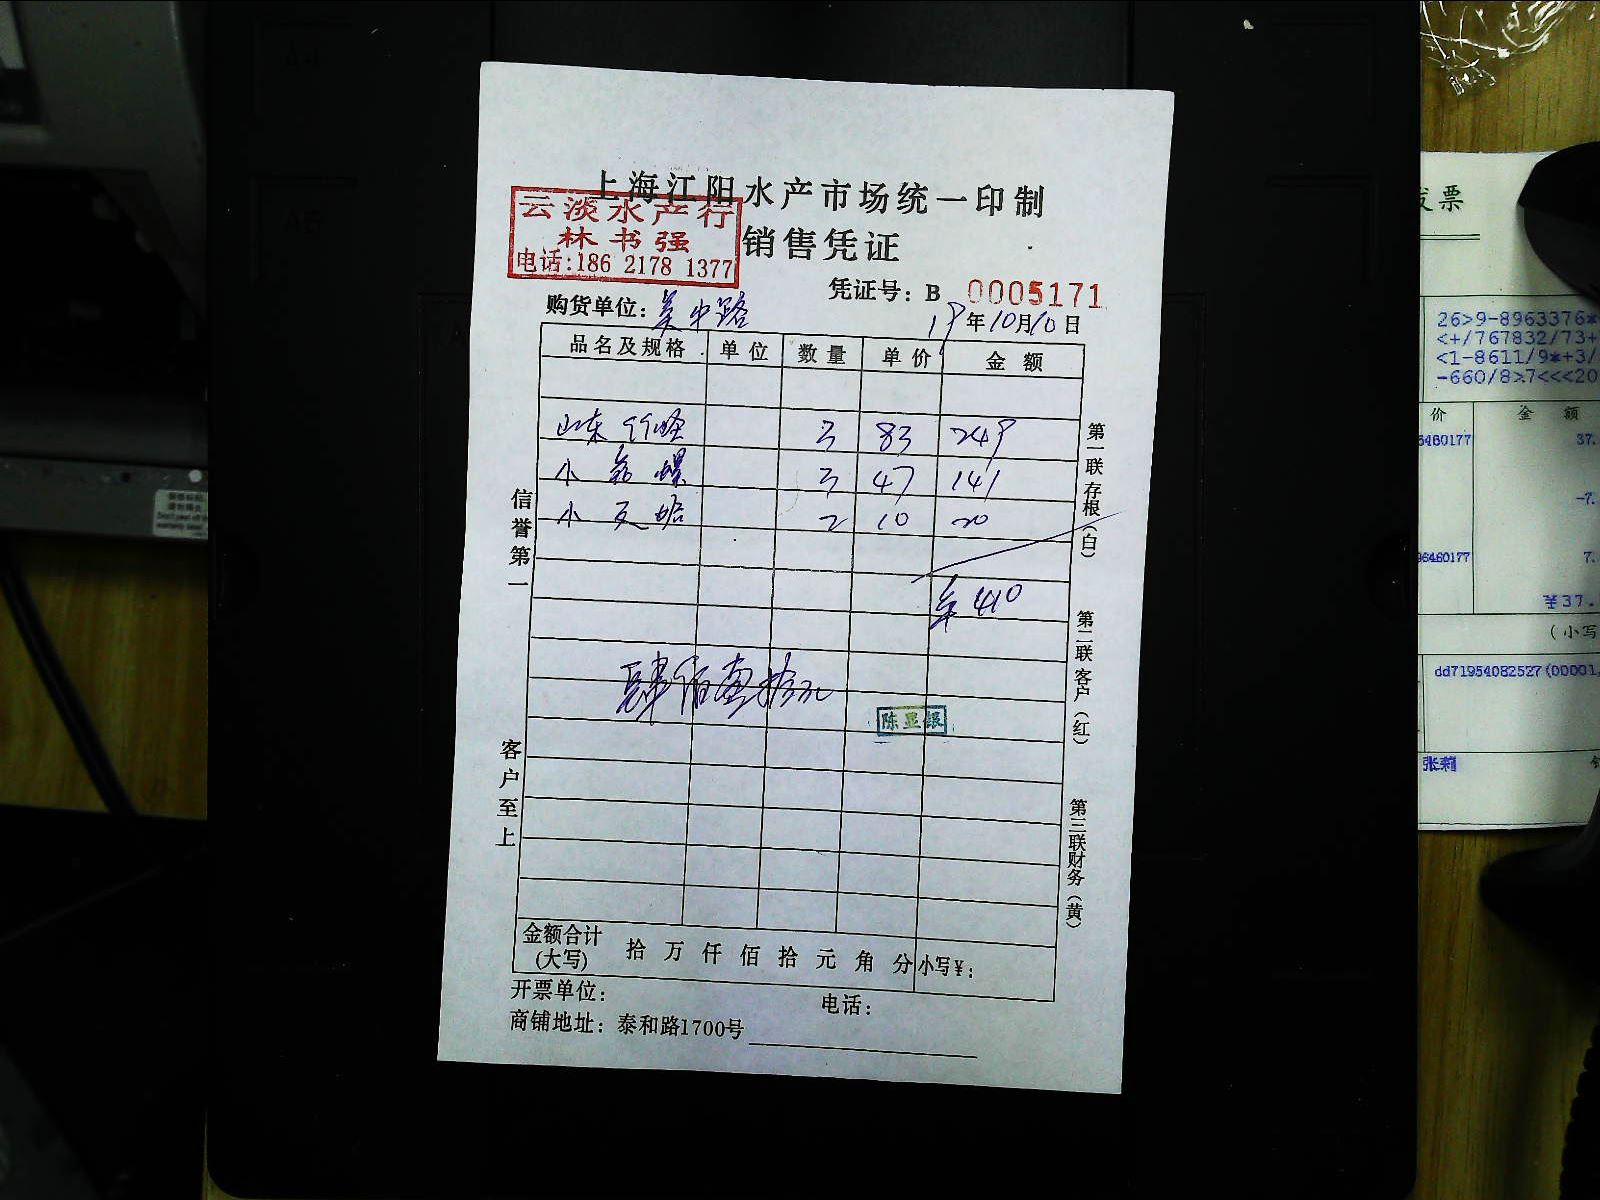 上海江阳水产市场统一印制
云淡水产行
林书强
电话:186 2178 1377
销售凭证
凭证号: B 0005171
购货单位: 吴中路
19年10月10日
品名及规格 单位 数量 单价 金额
山东 竹蛏 3 83 249
小 螺 3 47 141
小 2 10 20
¥410
肆佰壹拾元
陈显银
信誉第一
客户至上
第一联存根(白)
第二联客户(红)
第三联财务(黄)
金额合计(大写) 拾 万 仟 佰 拾 元 角 分 小写¥:
开票单位: 电话:
商铺地址: 泰和路1700号
发票
26>9-8963376*
<+/767832/73+
<1-8611/9*+3/
-660/8>7<<<20
价 金 额
6460177 37.
-7.
96460177 7.
¥37.
(小写
dd71954082527(00001,
张莉